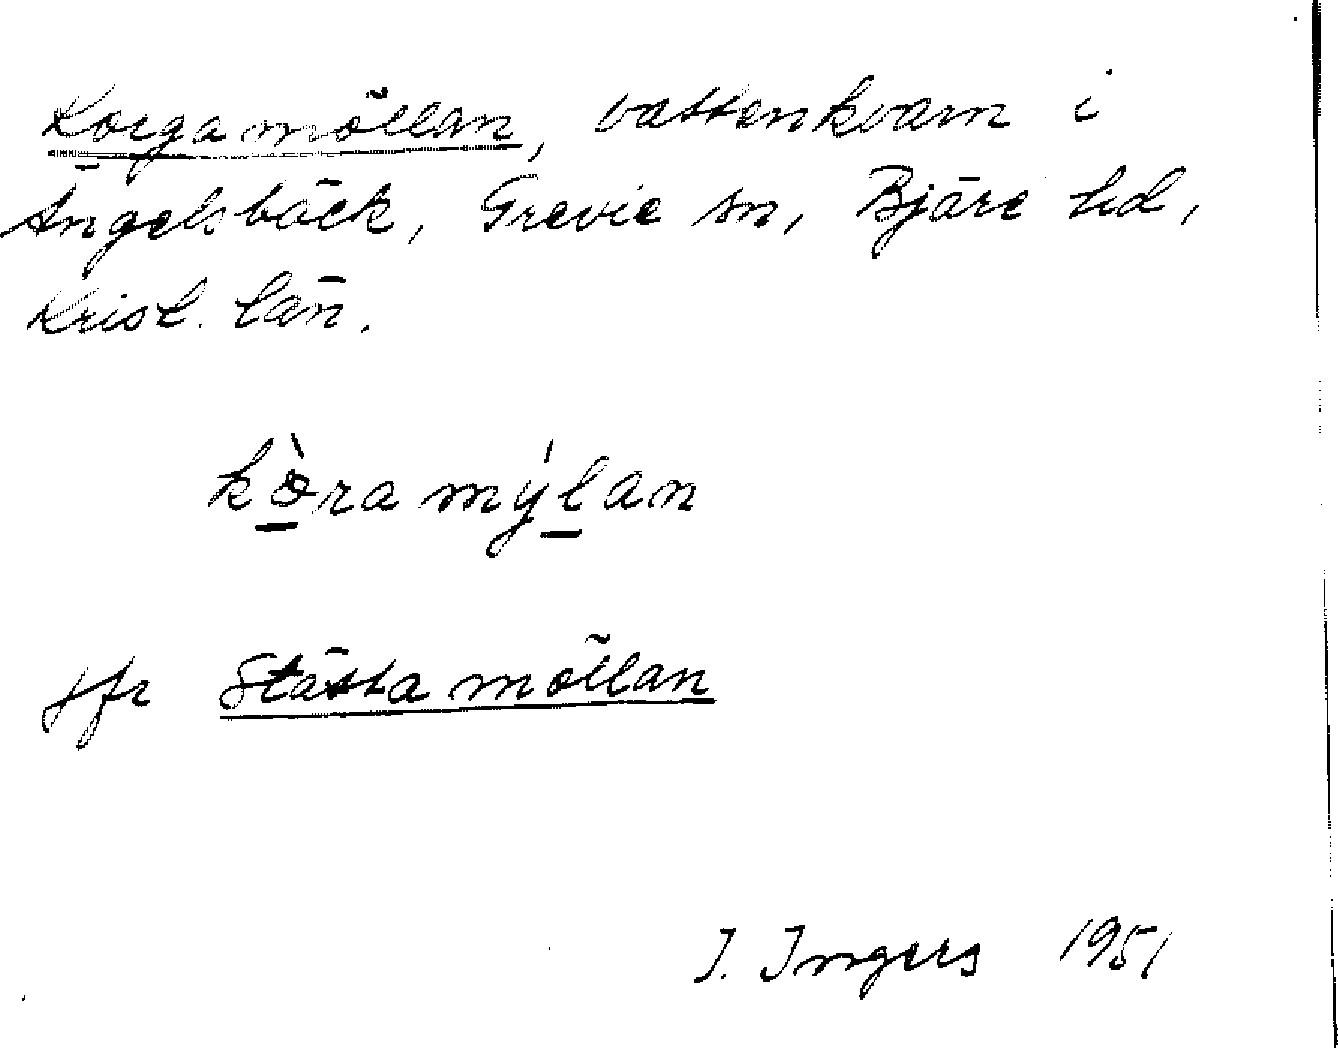 Korgamöllan, vattenkvarn i
Ängelsbäck, Grevie sn, Bjäre hd,
Krist. län.
kòramýlan
jfr Stättamöllan
I. Ingers 1951